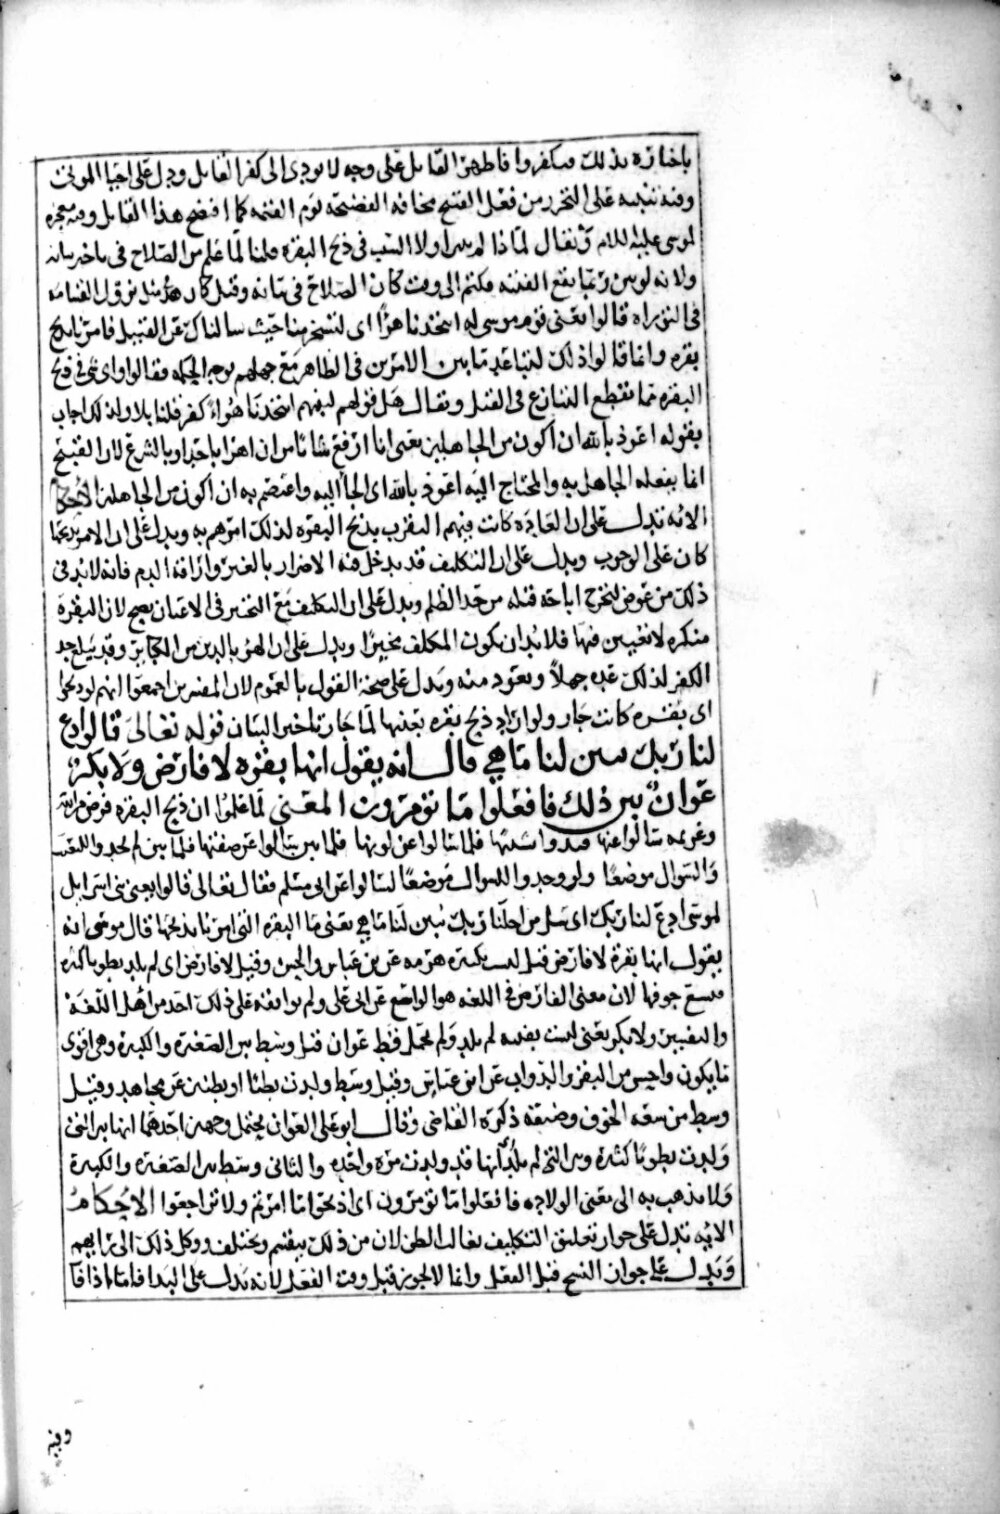 باخباره بذلك فيكفروا فاظهر القاتل على وجه لا يودي الى كفر القاتل ودل على احيا الموتى
وفيه تنبيه على التحرز من فعل القبيح مخافة الفضيحة يوم القيمة كما افتضح هذا القاتل وفيه معجزه
لموسى عليه السلام ويقال لماذا لم يبين اولا السبب في ذبح البقره قلنا لما علم من الصلاح في تاخير بيانه
ولانه لو بين ربما يقع الفتنه فكتم الى وقت كان الصلاح في بيانه وقيل كان هذا قبل نزول القسامه
في التوراه قالوا يعني قوم موسى له اتتخذنا هزوا اي اتسخر بنا حيث سالناك عن القتيل فامرتنا بذبح
بقره وانما قالوا ذلك لتباعد ما بين الامرين في الظاهر مع جهلهم بوجه الحكمه فقالوا واي شي في ذبح
البقره مما يقطع التنازع في القتل ويقال هل قولهم لنبيهم اتتخذنا هزوا كفر قلنا بلا ولذلك اجاب
بقوله اعوذ بالله ان اكون من الجاهلين يعني انا ارفع شانا من ان اهزا باحد او بالشرع لان القبيح
انما يفعله الجاهل به والمحتاج اليه اعوذ بالله اي الجا اليه واعتصم به ان اكون من الجاهلين الاحكام
الايه تدل على ان العاده كانت فيهم التقرب بذبح البقره لذلك امرهم به ويدل على ان الامر بذبحها
كان على الوجوب ويدل على ان التكليف قد يدخل فيه الاضرار بالغير واراقة الدم فانه لا بد في
ذلك من عوض لتخرج اباحة قتله من حد الظلم ويدل على ان التكليف مع التخيير في الاعيان يصح لان البقره
منكره لا تعيين فيها فلا بد ان يكون المكلف مخيرا ويدل على ان الهزو بالدين من الكبائر وقد يبلغ حد
الكفر لذلك عده جهلا وتعوذ منه ويدل على صحة القول بالعموم لان المفسرين اجمعوا انهم لو ذبحوا
اي بقره كانت جاز ولو اراد ذبح بقره بعينها لما جاز تاخير البيان قوله تعالى قالوا ادع
لنا ربك يبين لنا ما هي قال انه يقول انها بقره لا فارض ولا بكر
عوان بين ذلك فافعلوا ما تومرون المعنى لما علموا ان ذبح البقره فرض من الله
وعزيمه سالوا عنها فبدوا بسنها فلما سالوا عن لونها فلما بين سالوا عن صفتها فلما بين لم يجدوا للتعنت
والسوال موضعا ولو وجدوا للسوال موضعا لسالوا عن ابي مسلم فقال تعالى قالوا يعني بني اسرايل
لموسى ادع لنا ربك اي سل من اجلنا ربك يبين لنا ما هي يعني ما البقره التي امرتنا بذبحها قال موسى انه
يقول انها بقرة لا فارض قيل ليست بكبيره هرمه عن بن عباس والحسن وقيل لا فارض اي لم يلد بطونا كثيره
فيتسع جوفها لان معنى الفارض في اللغه هو الواسع عن ابي علي ولم يوافقه على ذلك احد من اهل اللغة
والتفسير ولا بكر يعني ليست بفتيه لم يلد ولم تحمل قط عوان قيل وسط بين الصغيره والكبيره وهي اقوى
ما يكون واحسن من البقر والدواب عن ابن عباس وقيل وسط ولدت بطنا او بطنين عن مجاهد وقيل
وسط من سعة الجوف وضيقه ذكره القاضي وقال ابو علي العوان يحتمل وجهين احدهما انها بين التي
ولدت بطونا كثيره وبين التي لم يلد لانها قد ولدت مرة واحده والثاني وسط بين الصغيره والكبيرة
ولا يذهب به الى معنى الولاده فافعلوا ما تومرون اي اذبحوا ما امرتم ولا تراجعوا الاحكام
الايه تدل على جواز تعليق التكليف بغالب الظن لان من ذلك ينقسم ويختلف ووكل ذلك الى رايهم
ويدل على جواز النسخ قبل الفعل وانما لا يجوز قبل وقت الفعل لانه يدل على البدا فاما اذا فا
وفيه